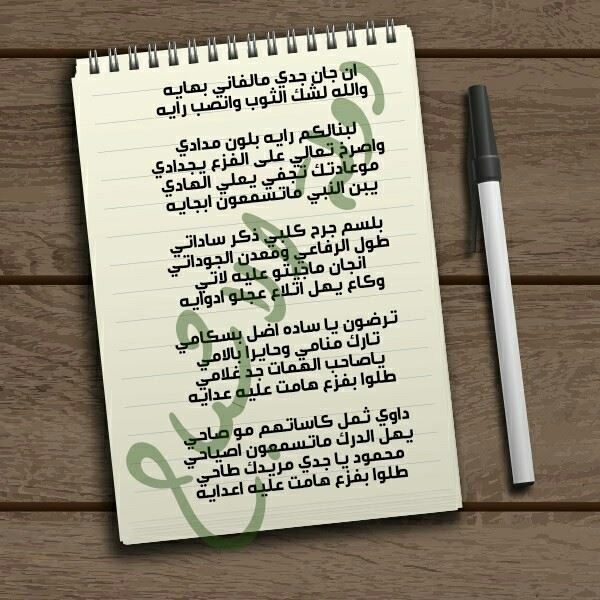 ان جان جدي مالفاني بهايه
والله لشك الثوب وانصب رايه
لبنالكم رايه بلون مدادي
واصرخ تعالي على الفزع يجدادي
موعادتك تجفي يعلي الهادي
يبن النبي ماتسمعون ابجايه
بلسم جرح كلبي ذكر ساداتي
طول الرفاعي ومعدن الجوداتي
انجان ماجيتو عليه لاني
وكاع يهل اتلاع عجلو ادوايه
ترضون يا ساده اضل بسكامي
تارك منامي وحايرا بالامي
ياصاحب الهمات جد غلامي
طلوا بفزع هامت عليه عدايه
داوي ثمل كاساتهم مو صاحي
يهل الدرك ماتسمعون اصياحي
محمود يا جدي مريدك طاحي
طلوا بفزع هامت عليه اعدايه